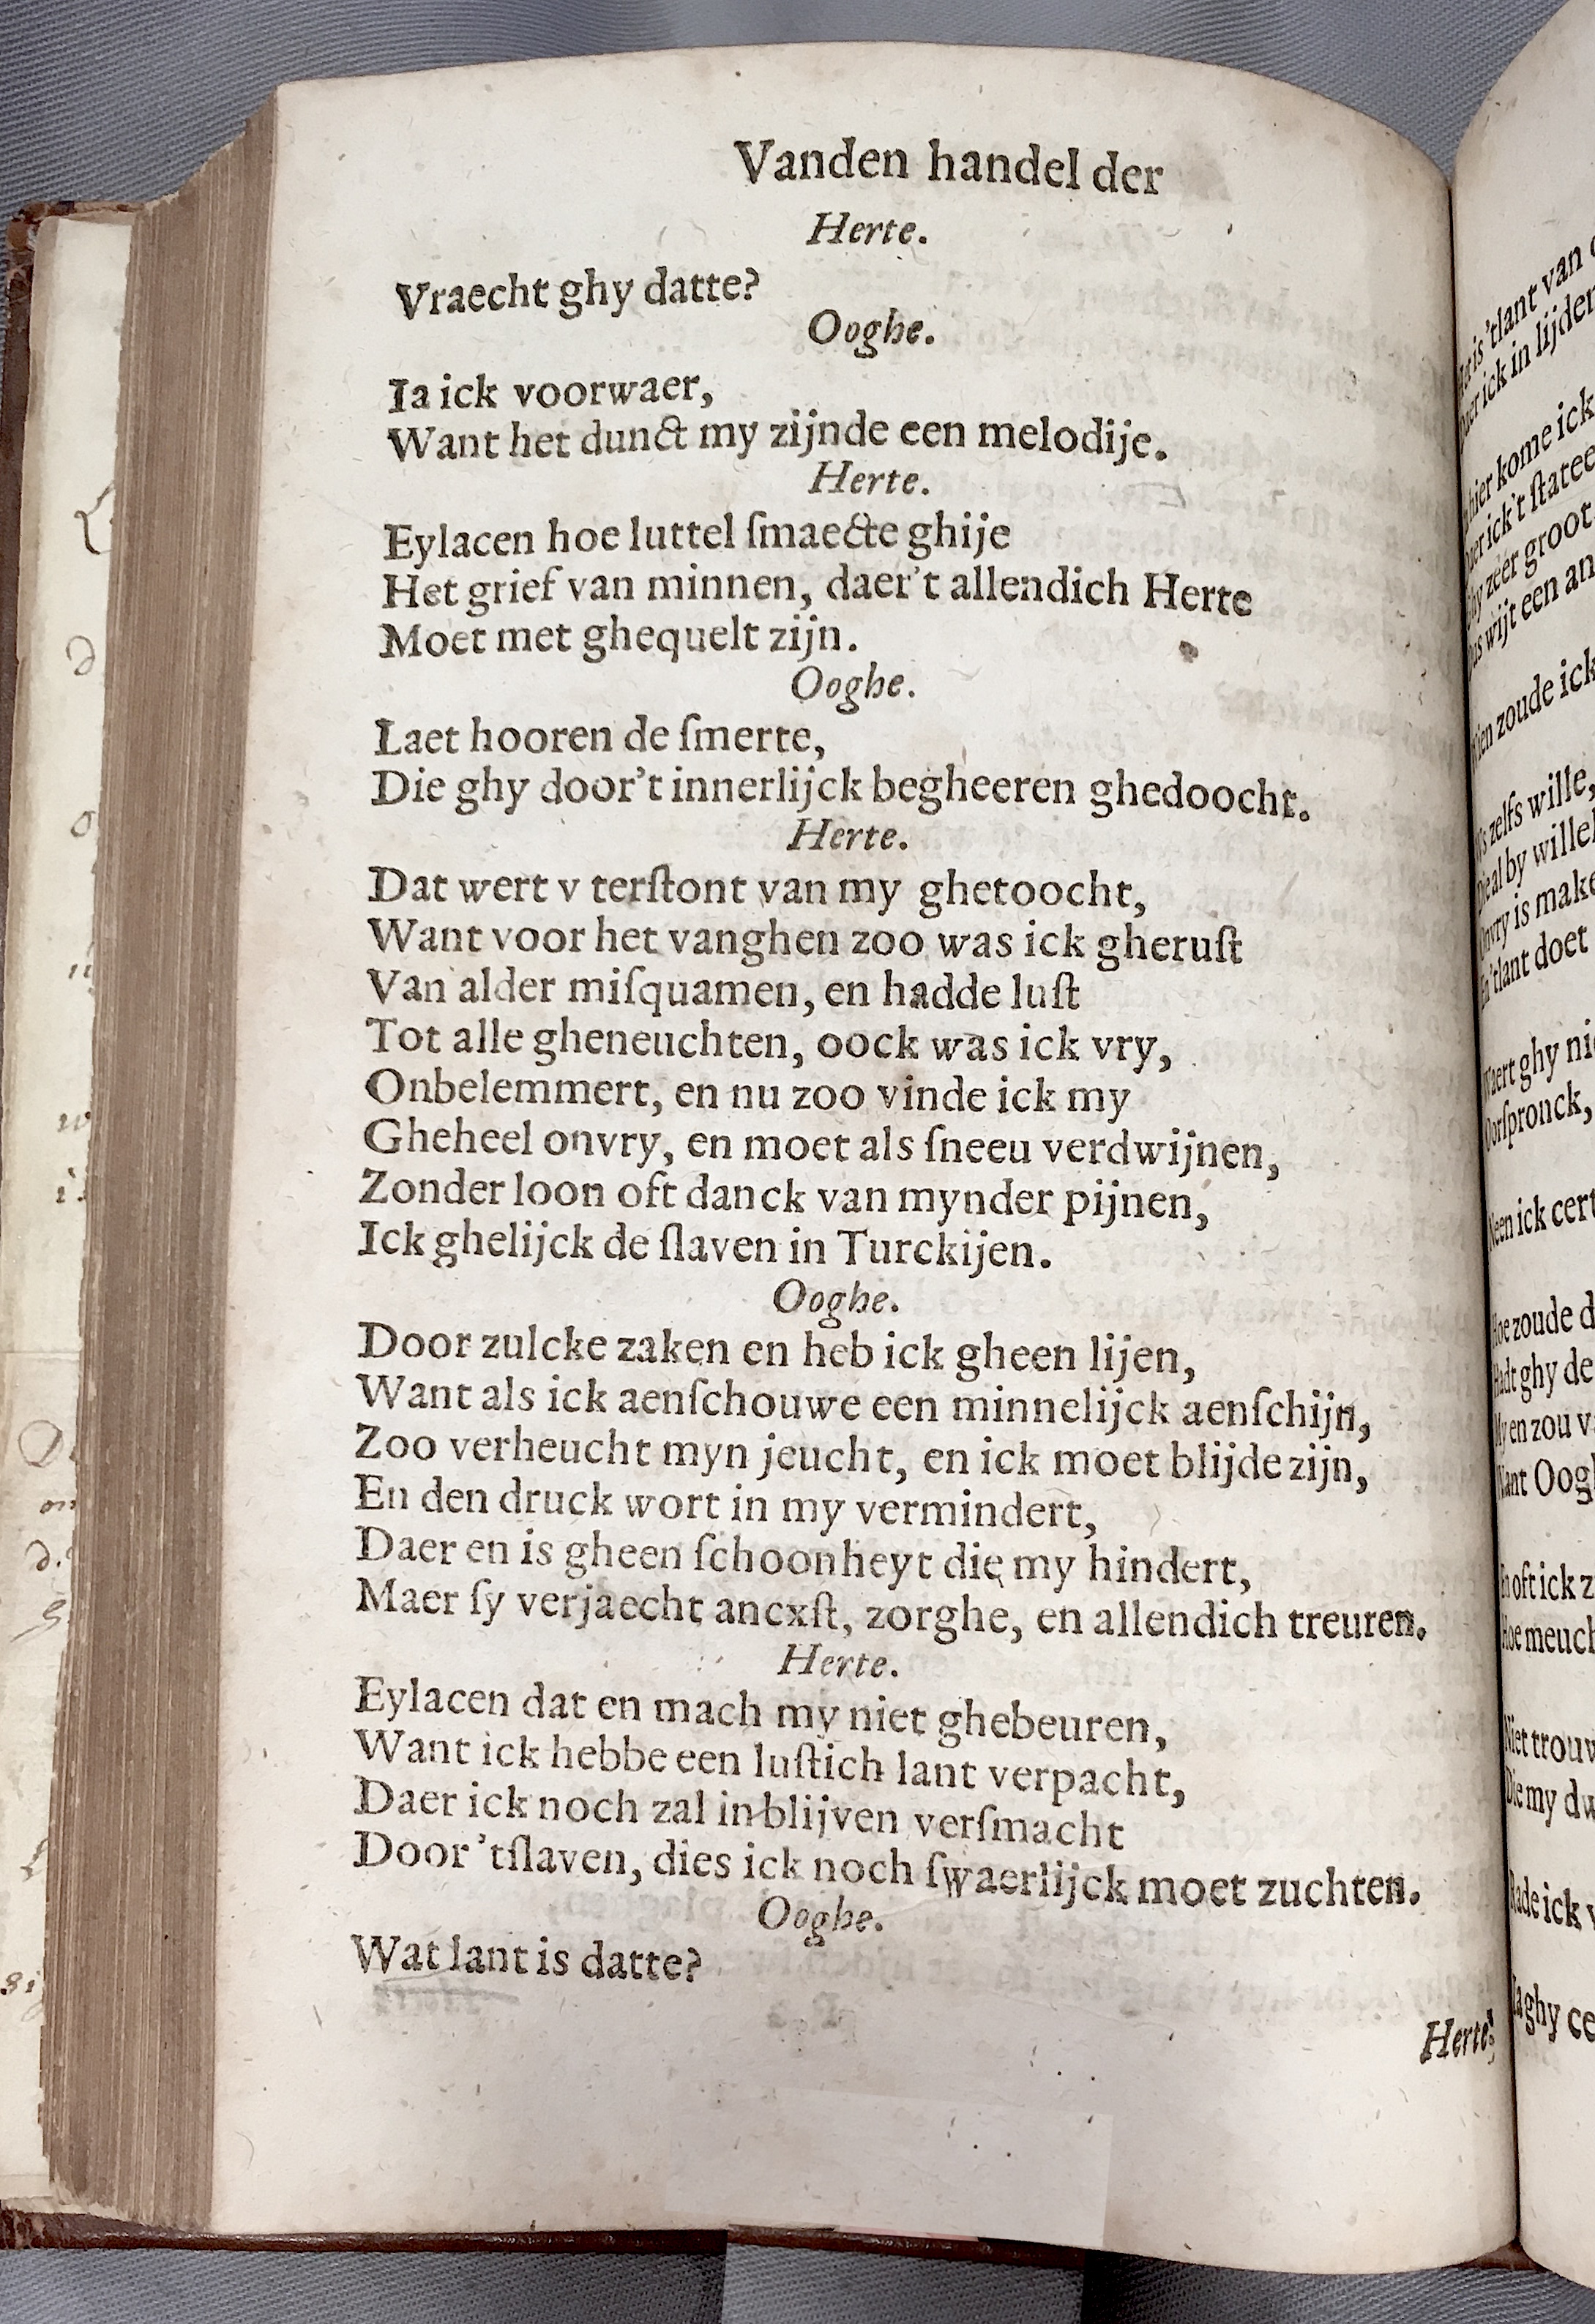 Vanden handel der
Herte.
Vraecht ghy datte?
Ooghe.
Ia ick voorwaer,
Want het dunct my zijnde een melodije.
Herte.
Eylacen hoe luttel ſmaecte ghije
Het grief van minnen, daer't allendich Herte
Moet met ghequelt zijn.
Ooghe.
Laet hooren de ſmerte,
Die ghy door't innerlijck begheeren ghedoocht.
Herte.
Dat wert v terſtont van my ghetoocht,
Want voor het vanghen zoo was ick gheruſt
Van alder miſquamen, en hadde luſt
Tot alle gheneuchten, oock was ick vry,
Onbelemmert, en nu zoo vinde ick my
Gheheel onvry, en moet als ſneeu verdwijnen,
Zonder loon oft danck van mynder pijnen,
Ick ghelijck de ſlaven in Turckijen.
Ooghe.
Door zulcke zaken en heb ick gheen lijen,
Want als ick aenſchouwe een minnelijck aenſchijn,
Zoo verheucht myn jeucht, en ick moet blijde zijn,
En den druck wort in my vermindert,
Daer en is gheen ſchoonheyt die my hindert,
Maer ſy verjaecht ancxſt, zorghe, en allendich treuren.
Herte.
Eylacen dat en mach my niet ghebeuren,
Want ick hebbe een luſtich lant verpacht,
Daer ick noch zal in blijven verſmacht
Door 'tſlaven, dies ick noch ſwaerlijck moet zuchten.
Ooghe.
Wat lant is datte?
Herte
is 'tlant van
ick in lijden
hier kome ick
ick 't ſtatee
zeer groot
wijt een an
zoude ick
zelfs wille,
al by wille
is make
'tlant doet
ghy ni
Oorſpronck,
ick cert
zoude d
ghy de
en zou v
Oog
oft ick z
meuch
trouw
my dw
ick v
ghy ce